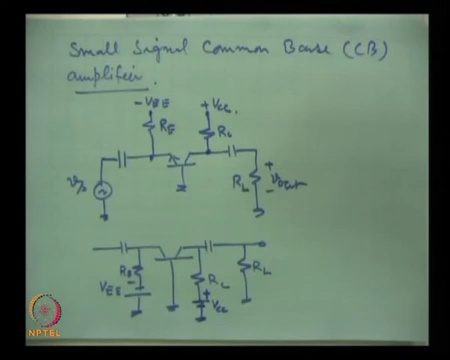 Small Signal Common Base (CB)
amplifier.
-VEE +VCC
RE RL
vs RL + vout -
RE RL RL
VEE - + VCC
NPTEL